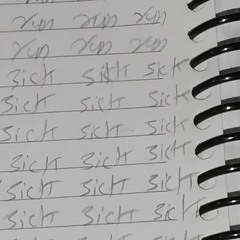 run run run
run run run
sick sick sick
sick sick sick
sick sick sick
sick sick sick
sick sick sick
sick sick sick